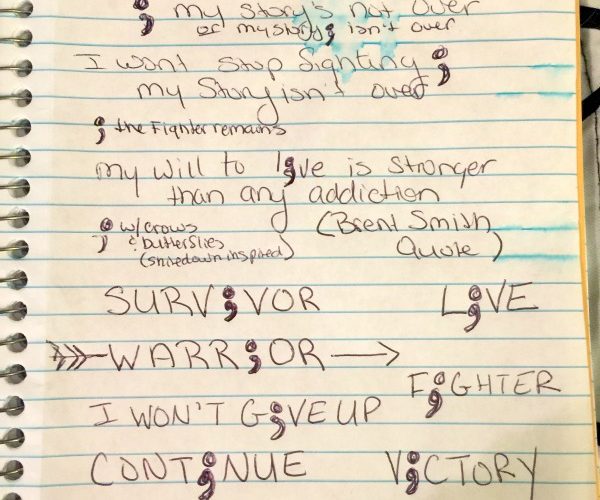 ; my story's not over
or my story; isn't over
I wont stop fighting ;
my Story isn't over
; the Fighter remains
my will to l;ve is stronger
than any addiction
; w/crows
& butterflies
(shinedown inspired)
(Brent Smith
Quote)
SURV;VOR
L;VE
WARR;OR
F;GHTER
I WON'T G;VE UP
CONT;NUE
V;CTORY